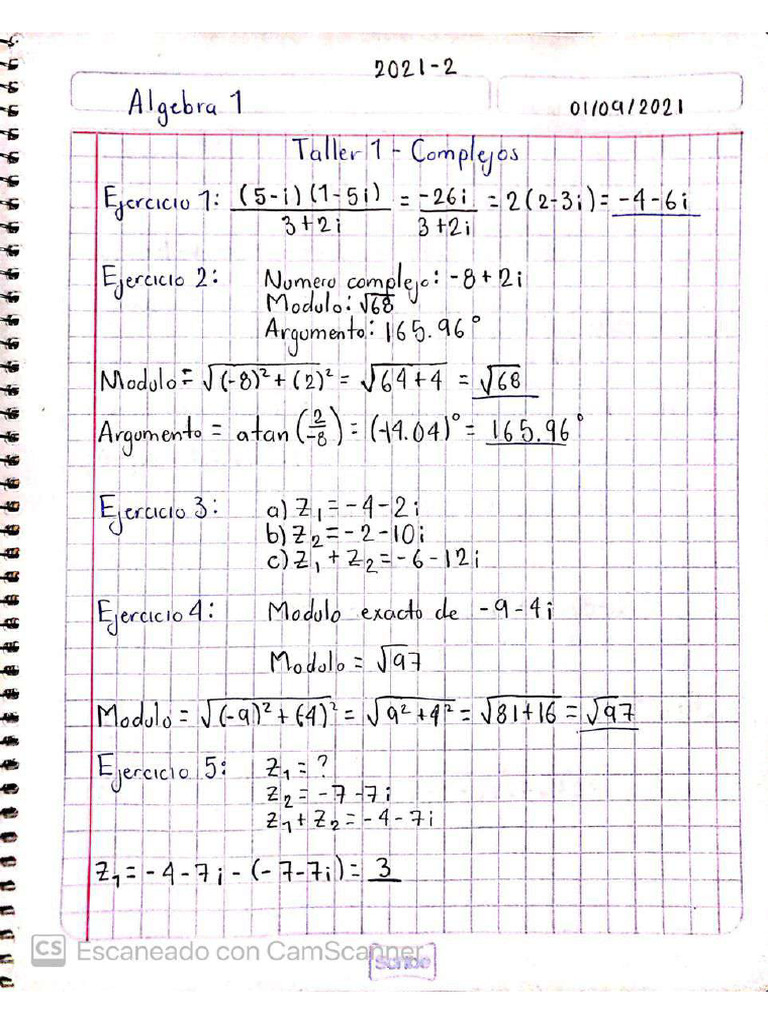 2021-2
Algebra 1
01/09/2021
Taller 1 - Complejos
Ejercicio 1: (5-i)(1-5i)/3+2i = -26i/3+2i = 2(2-3i) = -4-6i
Ejercicio 2: Numero complejo: -8+2i
Modulo: √68
Argumento: 165.96°
Modulo = √(-8)²+(2)² = √64+4 = √68
Argumento = atan(2/-8) = (-14.04)° = 165.96°
Ejercicio 3: a) Z₁=-4-2i
b) Z₂=-2-10i
c) Z₁+Z₂=-6-12i
Ejercicio 4: Modulo exacto de -9-4i
Modulo = √97
Modulo = √(-9)²+(-4)² = √9²+4² = √81+16 = √97
Ejercicio 5: Z₁=?
Z₂=-7-7i
Z₁+Z₂=-4-7i
Z₁=-4-7i-(-7-7i)=3
CS Escaneado con CamScanner